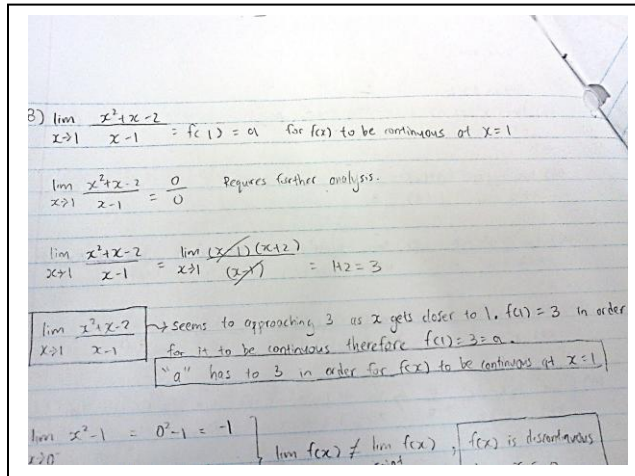 3) lim x→1 x²+x-2 / x-1 = f(1) = a for f(x) to be continuous at x=1
lim x→1 x²+x-2 / x-1 = 0/0 Requires further analysis.
lim x→1 x²+x-2 / x-1 = lim x→1 (x-1)(x+2) / (x-1) = 1+2 = 3
lim x→1 x²+x-2 / x-1 → seems to approaching 3 as x gets closer to 1. f(1) = 3 in order
for it to be continuous therefore f(1)=3=a.
"a" has to 3 in order for f(x) to be continuous at x=1
lim x→0⁻ x²-1 = 0²-1 = -1
lim f(x) ≠ lim f(x), f(x) is discontinuous